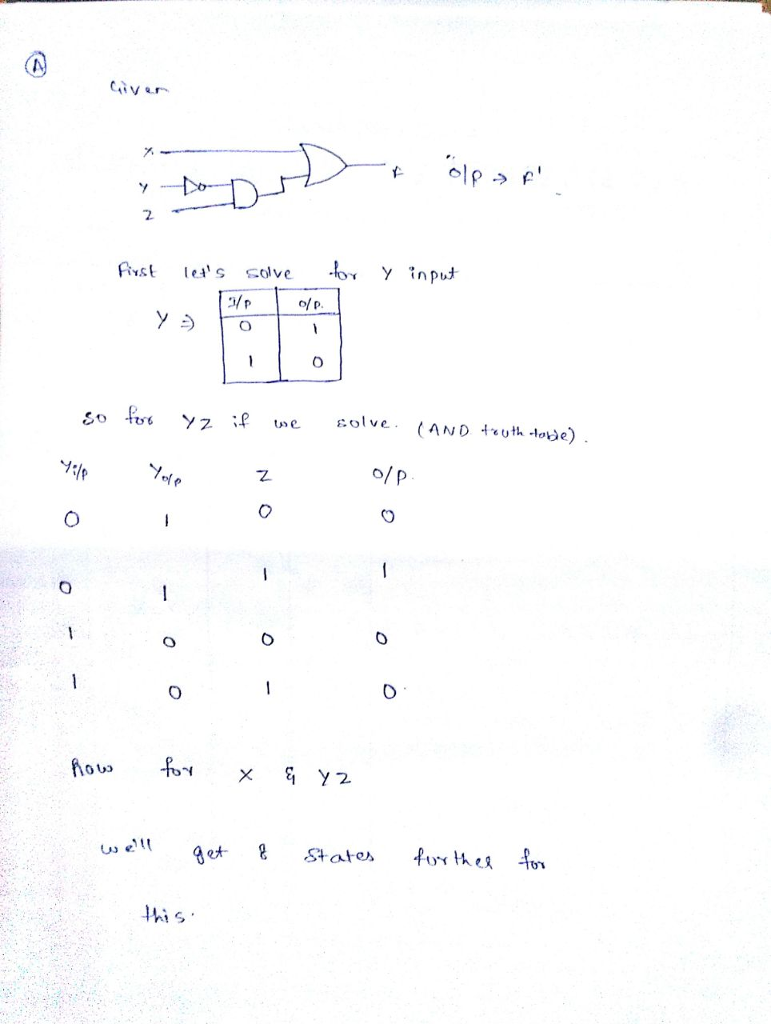 A
Given
X
Y
Z
F
"o/p → F'
First let's solve for Y input
Y ⇒
I/p o/p.
0 1
1 0
so for YZ if we solve. (AND truth table).
Yi/p Yo/p Z o/p.
0 1 0 0
0 1 1 1
1 0 0 0
1 0 1 0
Now for X & YZ
we'll get 8 states further for
this.